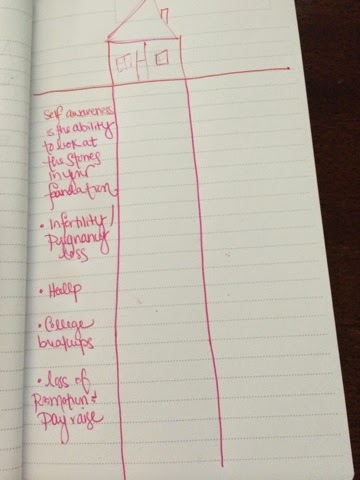 Self awareness
is the ability
to look at
the stones
in your
foundation
• Infertility/
Pregnancy
loss
•
• College
breakups
• loss of
Promotion &
Pay raise